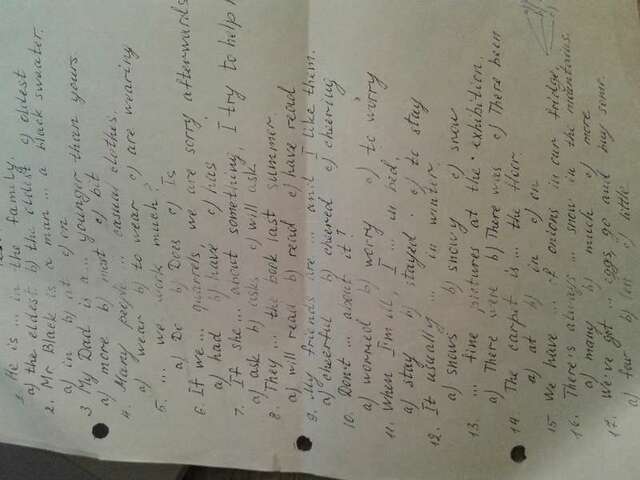 1. He is ... in the family.
a) the eldest b) the oldest c) eldest
2. Mr Black is a man ... a black sweater.
a) in b) at c) on
3 My Dad is a ... younger than yours
a) more b) most c) bit
4. Many people ... casual clothes.
a) wear b) to wear c) are wearing
5. ... we work much?
a) Do b) Does c) Is
6. If we ... quarrels we are sorry afterwards
a) had b) have c) has
7. If she ... about something, I try to help
a) ask b) asks c) will ask
8. They ... the book last summer
a) will read b) read c) have read
9. My friends are ... and I like them.
a) cheerful b) cheered c) cheering
10. Don't ... about it?
a) worried b) worry c) to worry
11. When I'm ill, I ... in bed,
a) stay b) stayed c) to stay
12. It usually ... in winter
a) snows b) snowy c) snow
13. ... fine pictures at the exhibition.
a) There were b) There was c) There been
14. The carpit is ... the floor
a) at b) in c) on
15. We have ... of onions in our fridge,
16. There is always ... snow in the mountains.
a) many b) much c) more
17. We've got ... eggs, go and buy some.
a) few b) c) little